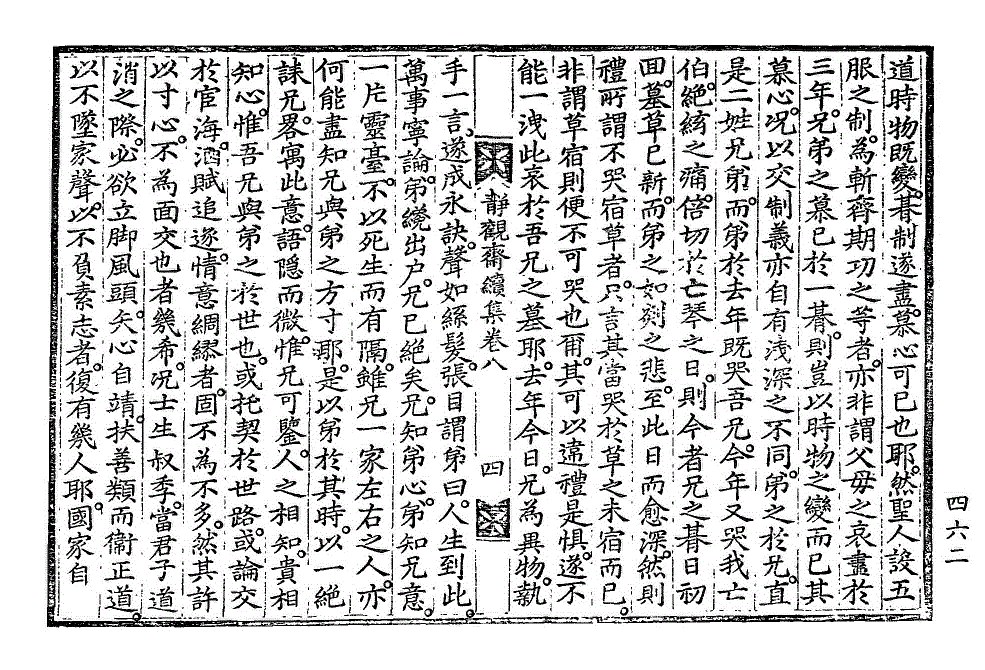 道時物既變。朞制遂盡。慕心可已也耶。然聖人設五
服之制。為斬齊期功之等者。亦非謂父母之哀盡於
三年。兄弟之慕已於一朞。則豈以時物之變而已其
慕心。况以交制義亦自有淺深之不同。弟之於兄。直
是二姓兄弟。而弟於去年既哭吾兄。今年又哭我亡
伯。絶絃之痛。倍切於亡琴之日。則今者兄之朞日初
回。墓草已新。而弟之如剡之悲。至此日而愈深。然則
禮所謂不哭宿草者。只言其當哭於草之未宿而已。
非謂草宿則便不可哭也爾。其可以違禮是惧。遂不
能一洩此哀於吾兄之墓耶。去年今日。兄為異物。執
靜觀齋續集卷八
四
手一言。遂成永訣。聲如絲髮。張目謂弟曰。人生到此。
萬事寧論。弟纔出户。兄已絶矣。兄知弟心。弟知兄意。
一片靈臺。不以死生而有隔。雖兄一家左右之人。亦
何能盡知兄與弟之方寸耶。是以弟於其時。以一絶
誄兄。畧寓此意。語隱而微。惟兄可鑒。人之相知。貴相
知心。惟吾兄與弟之於世也。或托契於世路。或論交
於宦海。酒賦追逐。情意綢繆者。固不為不多。然其許
以寸心。不為面交也者幾希。况士生叔季。當君子道
消之際。必欲立脚風頭。矢心自靖。扶善類而衞正道。
以不墜家聲。以不負素志者。復有幾人耶。國家自
四六二